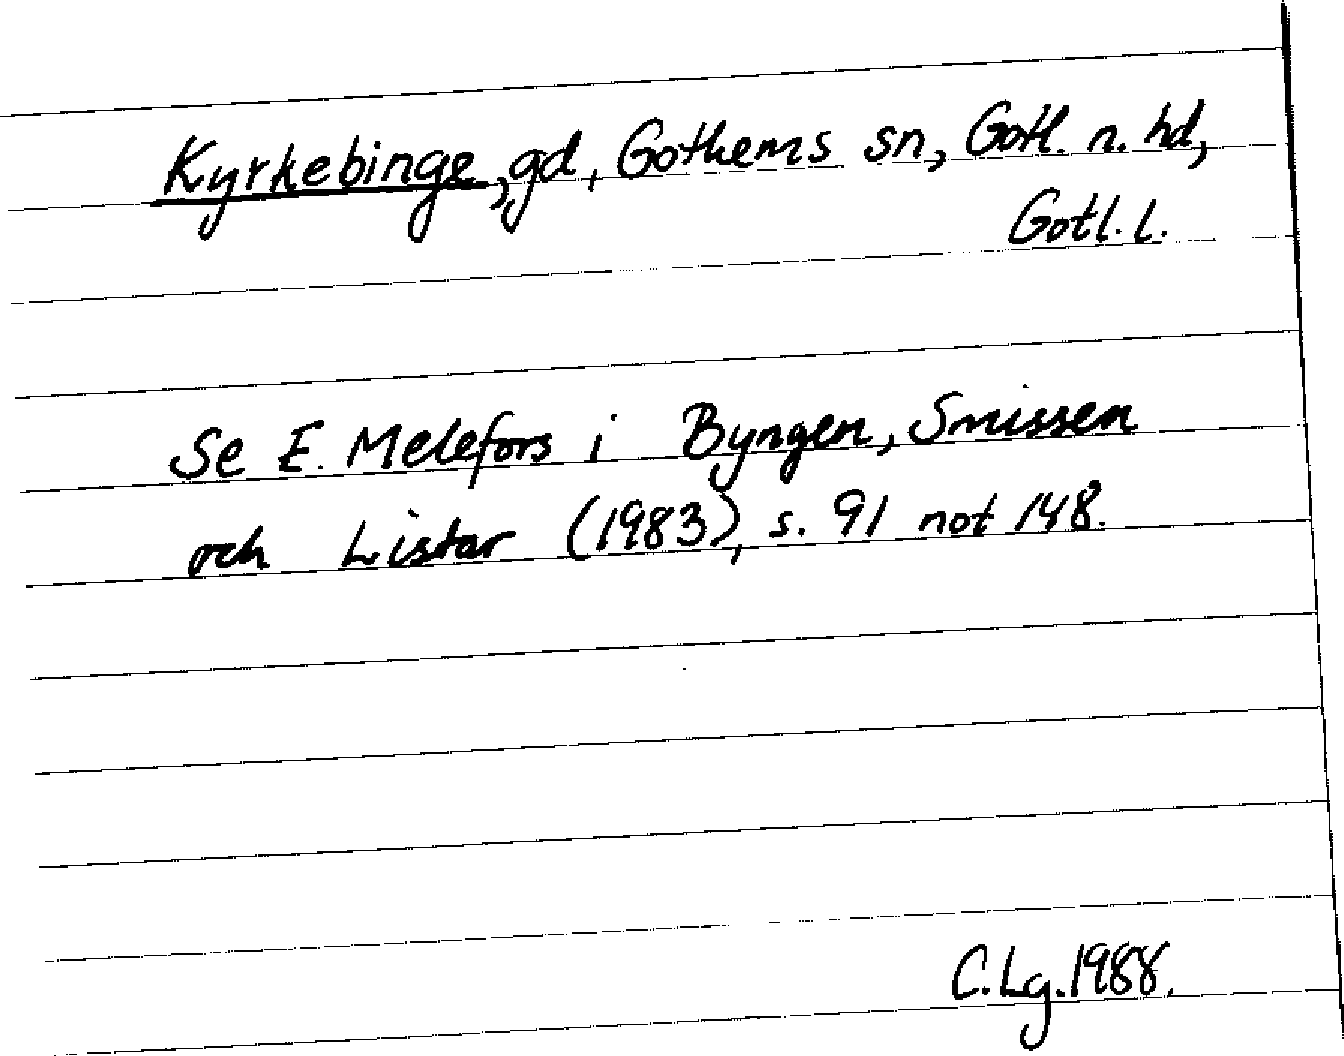 Kyrkebinge, gd, Gothems sn, Gotl. n. hd,
Gotl. l.
Se E. Melefors i Byngen, Smissen
och Listar (1983), s. 91 not 148.
C.Lg. 1988.